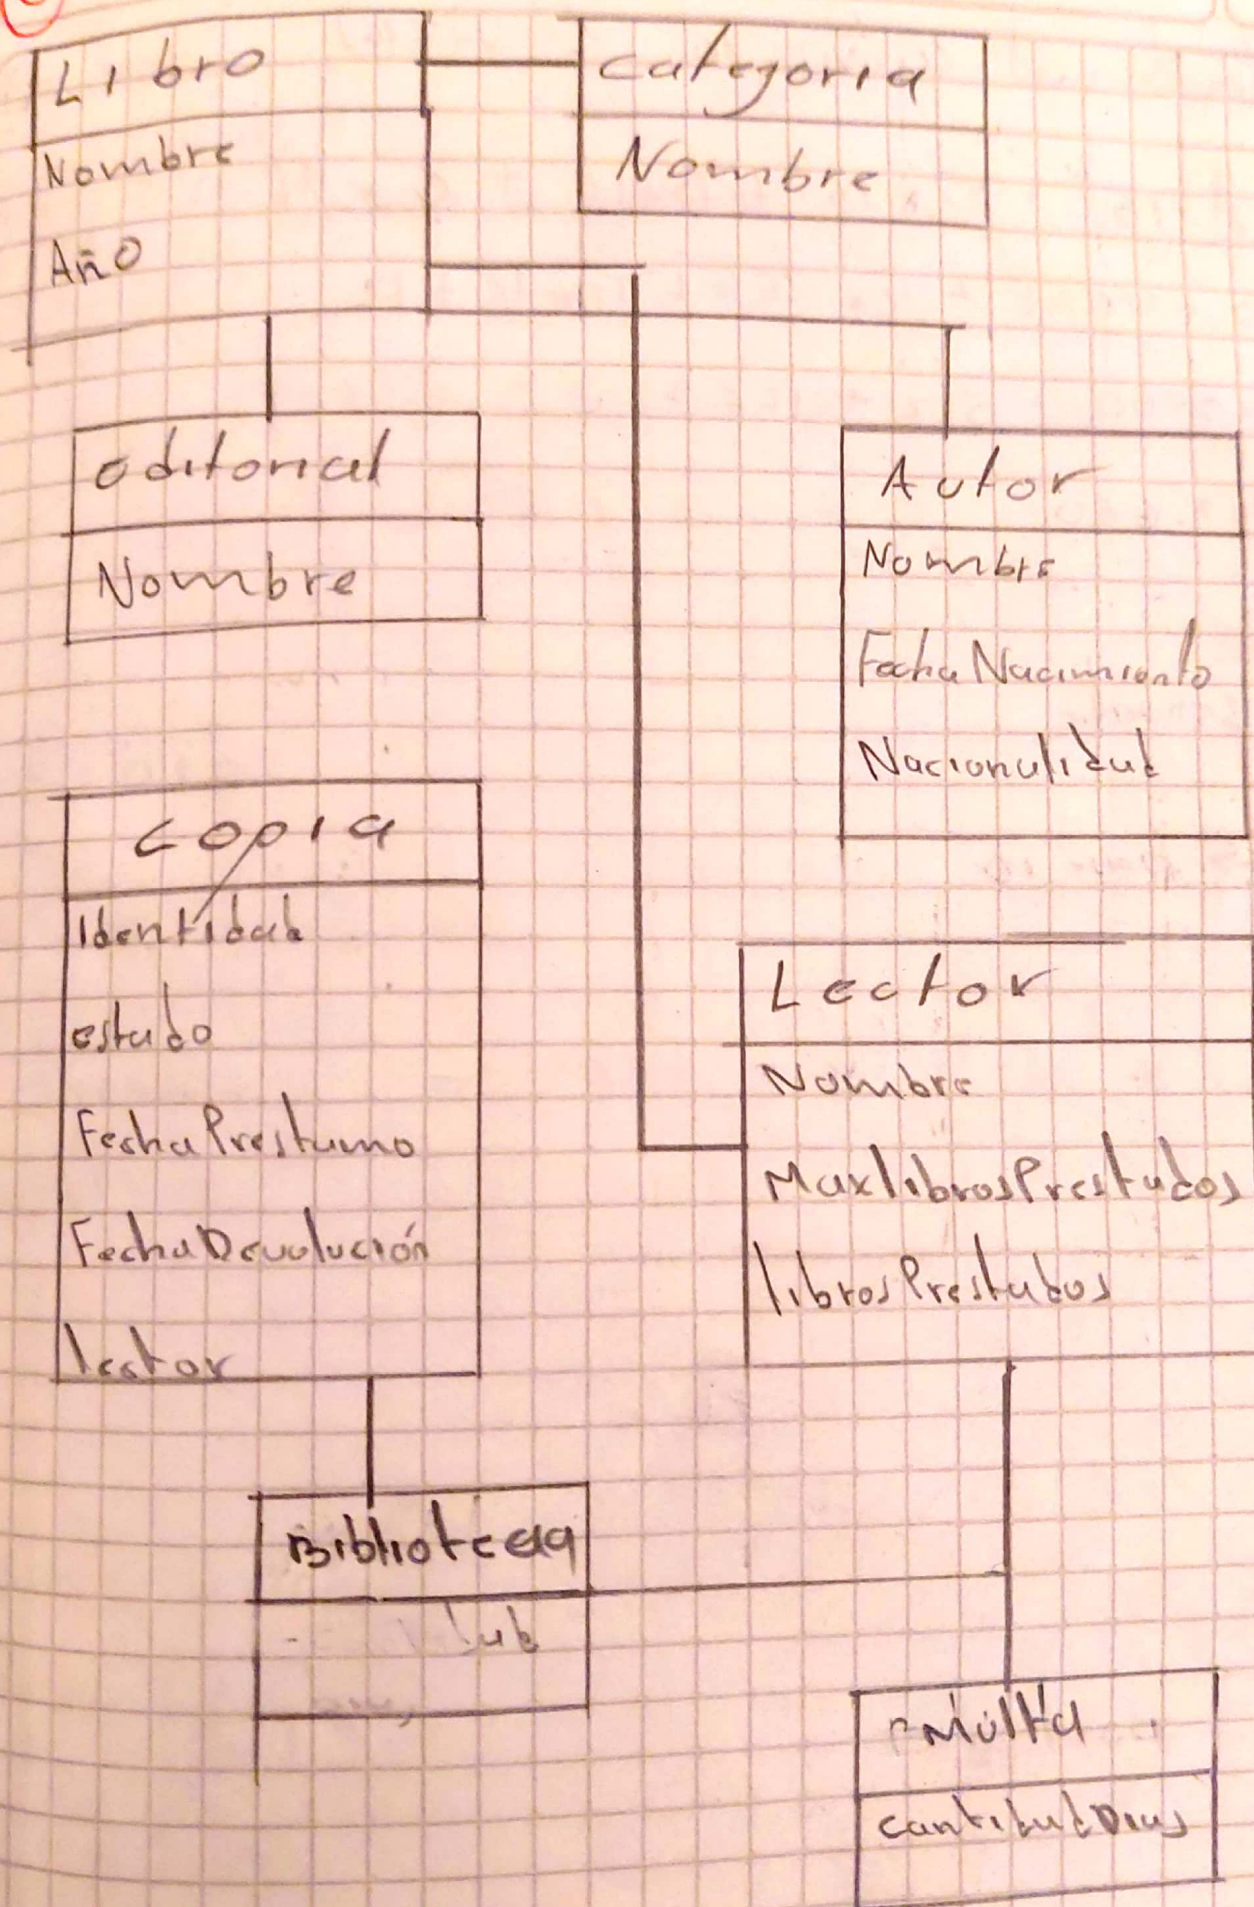 Libro
Nombre
Año
categoria
Nombre
editorial
Nombre
Autor
Nombre
FechaNacimiento
Nacionalidad
copia
Identidad
estado
FechaPrestamo
FechaDevolución
lector
Lector
Nombre
MaxlibrosPrestados
librosPrestados
Biblioteca
Multa
cantidadDias